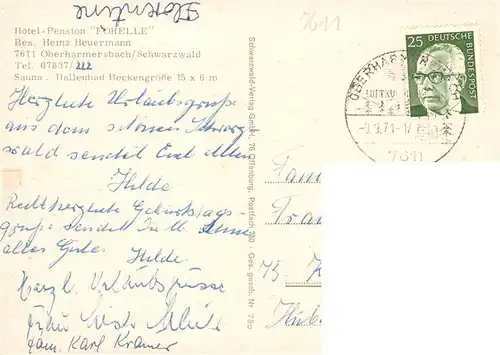 Florentine
Hotel-Pension "FORELLE"
Bes. Heinz Heuermann
7611 Oberharmersbach/Schwarzwald
Tel. 07837/222
Sauna . Hallenbad Beckengröße 15 x 6 m
Herzliche Urlaubsgrüße
aus dem schönen Schwarz
wald sendet Euch allen
Hilde
Recht herzliche Geburtstags-
grüße sendet
alles Gute. Hilde.
Herzl. Urlaubsgrüsse
Fam. Karl Krämer
Schwarzwald-Verlag GmbH, 76 Offenburg, Postfach 780 · Ges. gesch. Nr.
7611
25 DEUTSCHE BUNDESPOST
OBERHARM
LUFTKU
-9.9.71-17
7611
Fam
Fra
75 K
Hüb